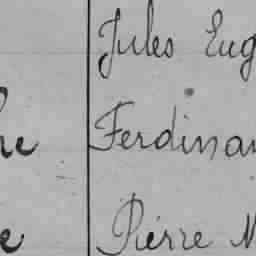 Jules Eug
Ferdinan
Pierre